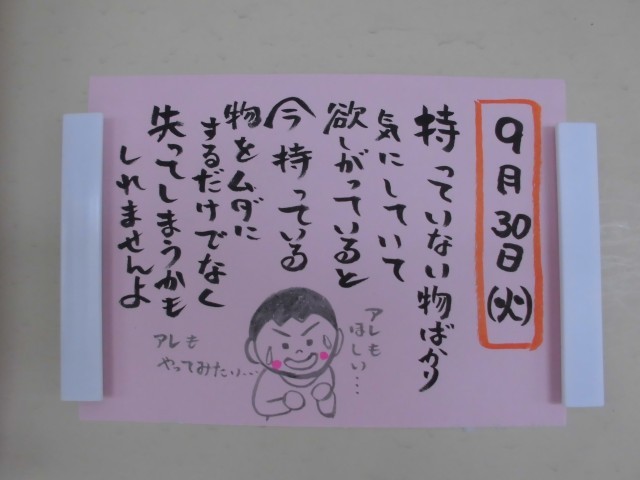 9月30日(火)
持っていない物ばかり
気にしていて
欲しがっていると
今持っている
物をムダに
するだけでなく
失ってしまうかも
しれませんよ
アレも
ほしい…
アレも
やってみたい…